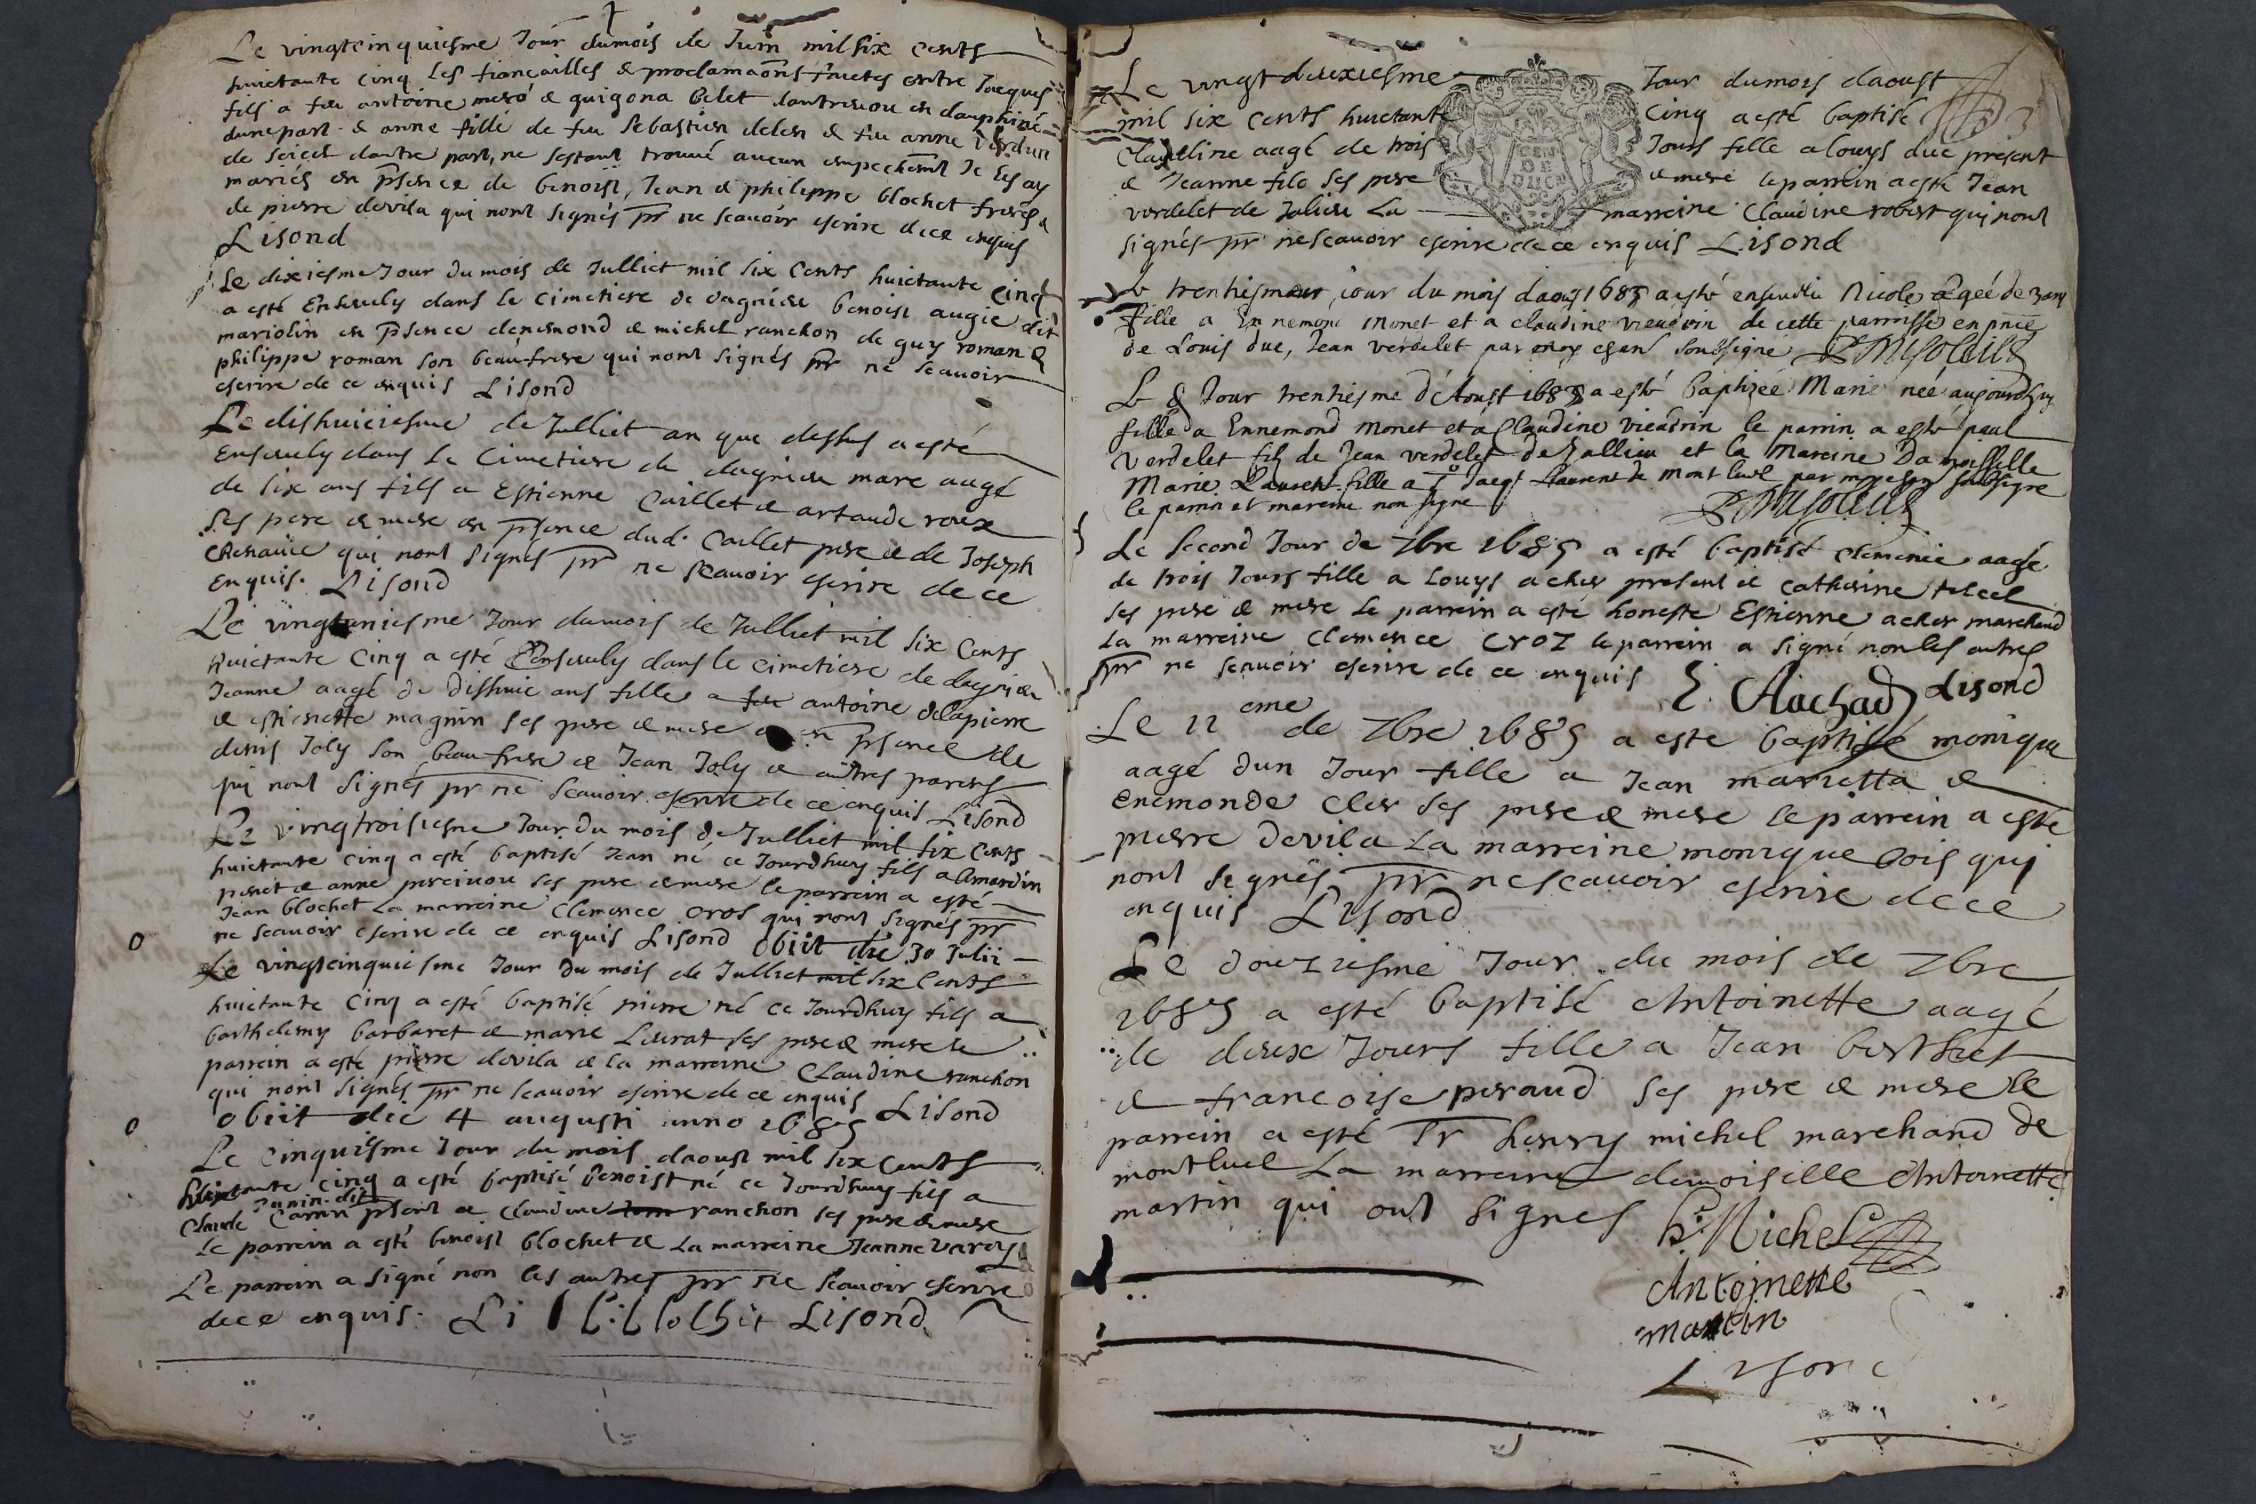 Le vingtcinquiesme Jour du mois de Juin mil six cents
huictante cinq les fiancailles & proclamaõns faictes entre Jacques
fils a feu antoine & guigona belet en dauphiné
dune part & anne fille de feu Sebastien & feu anne verdun
de dautre part, ne sestant trouvé aucun empechemt Je les ay
mariés en psence de benoist, Jean & philippe blochet freres &
de pierre devila qui nont signés pr ne scavoir escrire de ce enquis
Lisond
Le dixiesme Jour du mois de Julliet mil six Cents huictante cinq
a esté Enseuely dans le cimetiere de dagnieu benoist augie dit
mariolin en psence denemond & michel ranchon de guy roman &
philippe roman son beau frere qui nont signés pr ne scavoir
escrire de ce enquis Lisond
Le dishuiciesme de Julliet an que dessus a esté
Enseuely dans le Cimetiere de dagnieu marc aagé
de six ans fils a Estienne Caillet & artaude roux
ses pere & mere en psence dud. Caillet pere & de Joseph
qui nont signés pr ne scavoir escrire de ce
enquis. Lisond
Le vingtuniesme Jour du mois de Julliet mil six Cents
huictante cinq a esté Enseuely dans le cimetiere de dagnieu
Jeanne aagé de disthuic ans fille a feu antoine delapierre
& estienette magnin ses pere & mere en psence de
denis Joly son beau frere & Jean Joly & autres parens
qui nont signés pr ne scavoir escrire de ce enquis Lisond
Le vingtroisiesme Jour du mois de Julliet mil six Cents
huictante cinq a esté baptisé Jean né ce Jourdhuy fils a
& anne ses pere & mere le parrein a esté
Jean blochet La marreine Clemence cros qui nont signés pr
ne scavoir escrire de ce enquis Lisond obiit die 30 Julii
Le vingtcinquiesme Jour du mois de Julliet mil six Cents
huictante cinq a esté baptisé pierre né ce Jourdhuy fils a
barthelemy barbaret & marie ses pere & mere le
parrein a esté pierre devila & la marreine Claudine ranchon
qui nont signés pr ne scavoir escrire de ce enquis
obiit die 4 augusti anno 1685 Lisond
Le cinquiesme Jour du mois daoust mil six cents
huictante cinq a esté baptisé benoist né ce Jourdhuy fils a
Claude psent & Claudine ranchon ses pere & mere
Le parrein a esté benoist blochet & La marreine Jeanne varey
Le parrein a signé non les autres pr ne scavoir escrire
de ce enquis. Lisond
Le vingt deuxiesme Jour du mois daoust
mil six cents huictante Cinq a esté baptisé
Claudine aagé de trois Jours fille a louys duc present
& Jeanne filo ses pere & mere le parrein a esté Jean
verdelet de Jalieu La marreine Claudine robert qui nont
signés pr ne scavoir escrire de ce enquis Lisond
Le trentiesme jour du mois daoust 1685 a esté ensevelie Nicole agée de 3 ans
fille a Ennemond monet et a claudine de cette parroisse en pnce
de Louis duc, Jean verdelet par moy soubsigné
Le Jour trentiesme d'Aoust 1685 a esté baptizée Marie née aujourdhuy
fille a Ennemond Monet et a Claudine le parrin a esté paul
Verdelet fils de Jean verdelet de Jallieu et la Mareine Damoiselle
Marie Laurent fille a Sr Jacqs Laurent de Montluel par moy soubsigné
le parrin et mareine non signé
Le Second Jour de 7bre 1685 a esté baptisé clemence aagé
de trois Jours fille a Louys acher present & catherine
ses pere & mere Le parrein a esté honeste Estienne acher marchand
La marreine Clemence Croz le parrein a signé non les autres
pr ne scavoir escrire de ce enquis Lisond
Le 11eme de 7bre 1685 a esté baptisé monique
aagé dun Jour fille a Jean marietta &
enemonde cler ses pere & mere le parrein a esté
pierre devila La marreine monique bois qui
nont signés pr ne scavoir escrire de ce
enquis Lisond
Le douziesme Jour du mois de 7bre
1685 a esté baptisé Antoinette aagé
de deux Jours fille a Jean berthet
& francoise peraud ses pere & mere le
parrein a esté Sr henry michel marchand de
montluel La marreine demoiselle Antoinette
martin qui ont signes
h. Michel
Antoinette
martin
Lisond